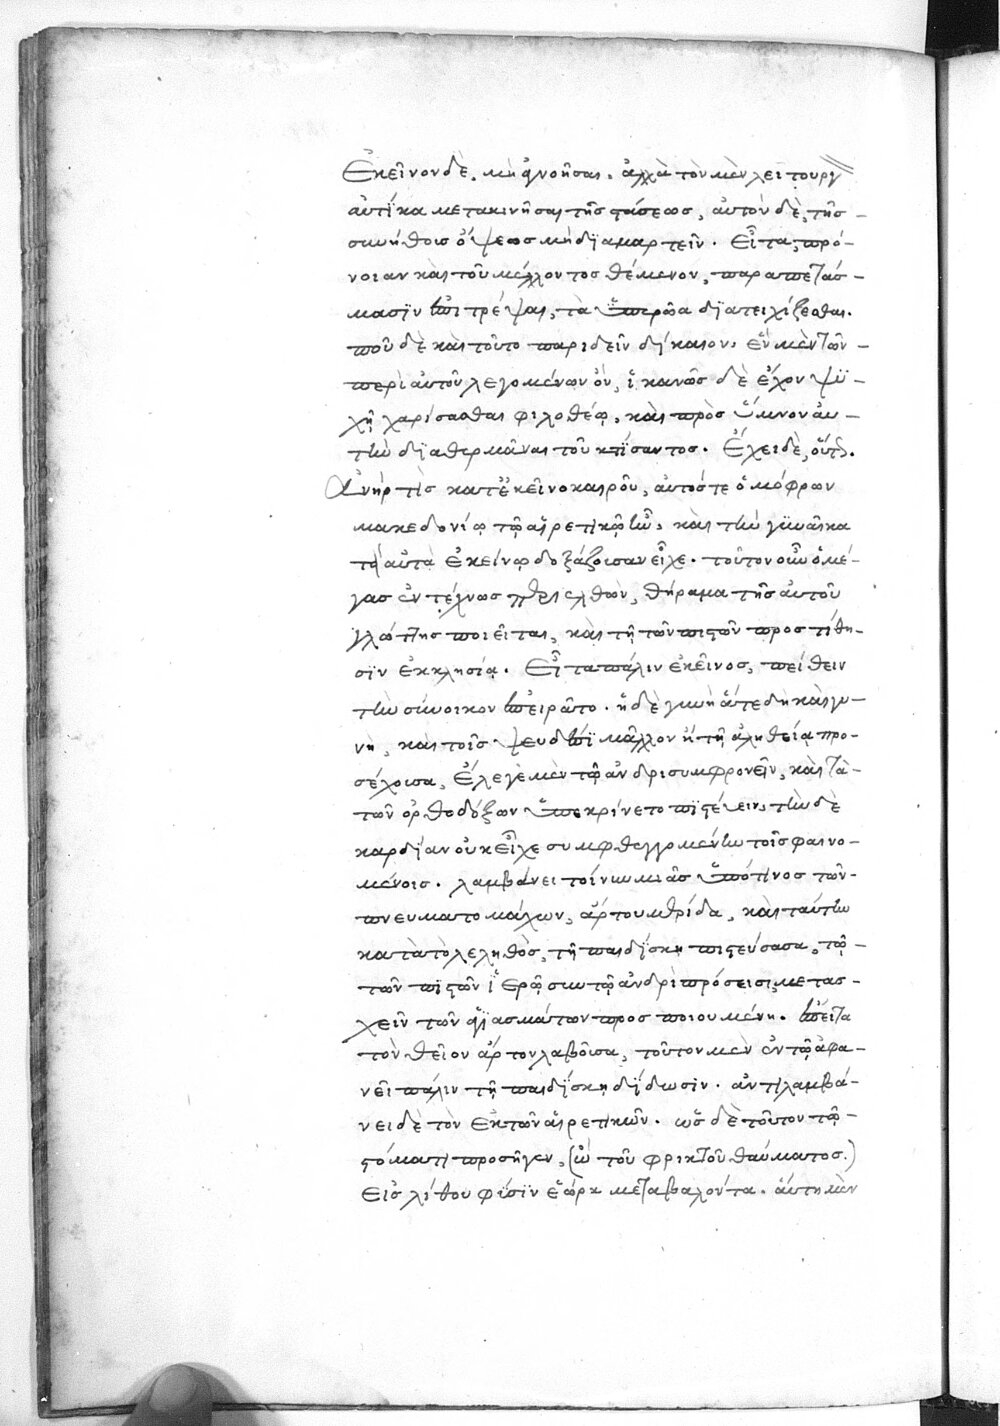 Ἐκεῖνον δὲ, μὴ ἀγνοῆσαι, ἀλλὰ τὸν μὲν λειτουργ
αὐτίκα μετακινῆσαι τῆς στάσεως, αὐτὸν δὲ, τῆς
συνήθους ὄψεως μὴ διαμαρτεῖν. Εἶτα, πρό-
νοιαν καὶ τοῦ μέλλοντος θέμενον, παραπετάσ-
μασϊν ἐπιτρέψαι, τὰ ὑπερῶα δϊατειχίζεσθαι.
ποῦ δὲ καὶ τοῦτο παριδεῖν δίκαιον, ἓν μὲν τῶν
περὶ αὐτοῦ λεγομένων ὂν, ἱκανῶς δὲ ἔχον ψυ-
χῇ χαρίσασθαι φιλοθέῳ, καὶ πρὸς ὕμνον αὐ-
τὴν δϊαθερμᾶναι τοῦ κτίσαντος. Ἔχει δὲ, οὕτως.
Ἀνήρ τὶς κατ' ἐκεῖνο καιροῦ, αὐτός τε ὁμόφρων
μακεδονίῳ τῷ αἱρετικῷ ἦν, καὶ τὴν γυναῖκα
τὰ αὐτὰ ἐκείνῳ δοξάζουσαν εἶχε. τοῦτον οὖν ὁ μέ-
γας ἐντέχνως περιελθὼν, θήραμα τῆς αὐτοῦ
γλώττης ποιεῖται, καὶ τῇ τῶν πιστῶν προστίθη-
σϊν ἐκκλησίᾳ. Εἶτα πάλιν ἐκεῖνος, πείθειν
τὴν σύνοικον ἐπειρᾶτο. ἡ δὲ γυνὴ ἅτε δὴ καὶ γυ-
νὴ, καὶ τοῖς ψεύδεσϊ μᾶλλον ἢ τῇ ἀληθείᾳ προ-
σέχουσα, ἔλεγε μὲν τῷ ἀνδρὶ συμφρονεῖν, καὶ τὰ
τῶν ὀρθοδόξων ὑπεκρίνετο πϊστεύειν, τὴν δὲ
καρδίαν οὐκ εἶχε συμφθεγγομένην τοῖς φαινο-
μένοις. λαμβάνει τοίνυν μιᾶς ὑπό τινος τῶν
πνευματομάχων, ἄρτου μερίδα, καὶ ταύτην
κατὰ τὸ λεληθὸς, τῇ παιδίσκῃ πιστεύσασα, τῷ
τῶν πϊστῶν ἱερῷ συν τῷ ἀνδρὶ πρόσεισι, μετασ-
χεῖν τῶν ἁγϊασμάτων προσποιουμένη. ἐπεὶ τα
τὸν θεῖον ἄρτον λαβοῦσα, τοῦτον μὲν ἐν τῷ ἀφα-
νεῖ πάλιν τῇ παιδίσκῃ δίδωσϊν. ἀντιλαμβά-
νει δὲ τὸν ἐκ τῶν αἱρετικῶν. ὡς δὲ τοῦτον τῷ
στόματι προσῆγεν, (ὢ τοῦ φρικτοῦ θαύματος.)
Εἰς λίθου φύσϊν ἑώρα μεταβαλόντα. αὕτη μὲν